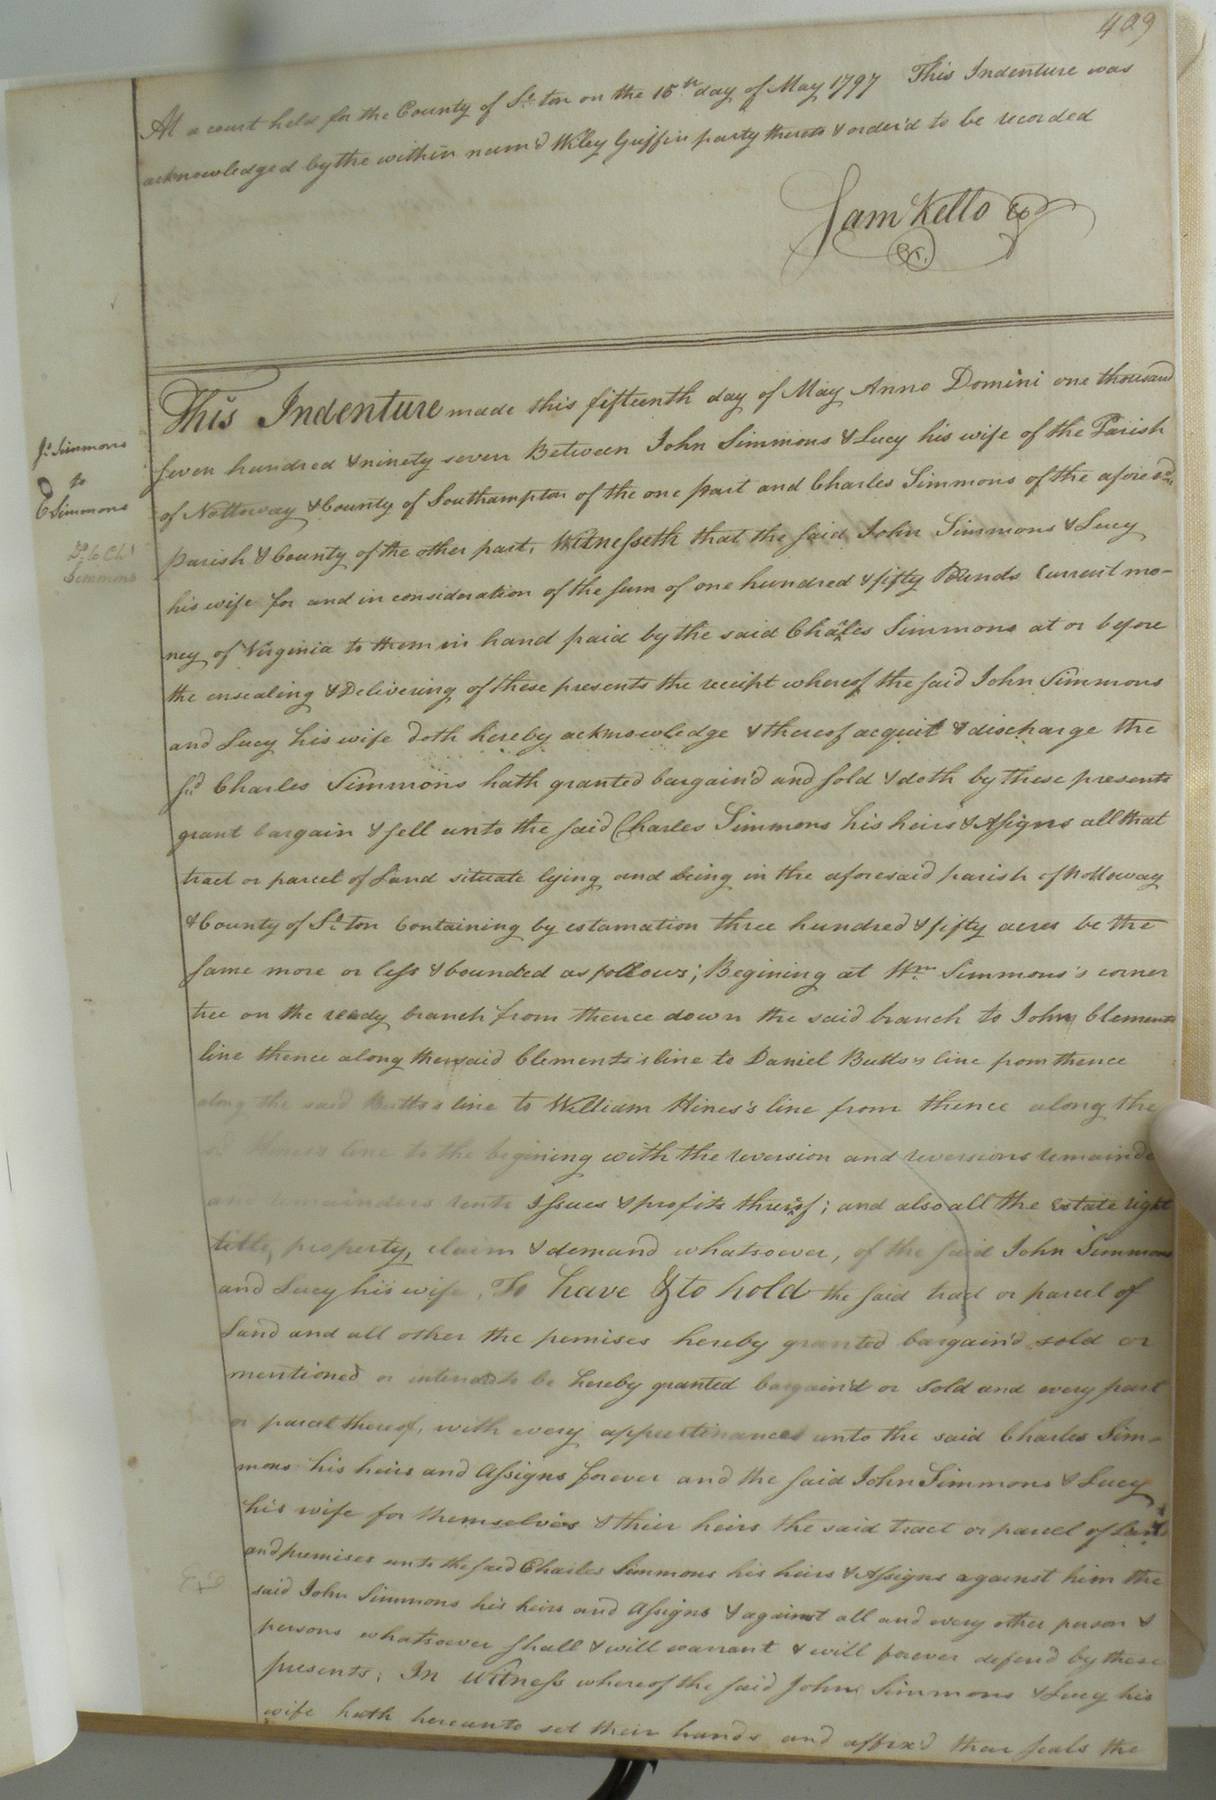 409
At a court held for the County of S:ton on the 15th day of May 1797 This Indenture was
acknowledged by the within nam'd Wiley Griffin party thereto & order'd to be recorded
Sam Kello
This Indenture made this fifteenth day of May Anno Domini one thousand
seven hundred & ninety seven Between John Simmons & Lucy his wife of the Parish
of Nottoway & County of Southampton of the one part and Charles Simmons of the aforesd
parish & County of the other part, Witnesseth that the said John Simmons & Lucy
his wife for and in consideration of the sum of one hundred & fifty Pounds Current mo-
ney of Virginia to them in hand paid by the said Charles Simmons at or before
the ensealing & Delivering of these presents the receipt whereof the said John Simmons
and Lucy his wife doth hereby acknowledge & thereof acquit & discharge the
sd Charles Simmons hath granted bargain'd and sold & doth by these presents
grant bargain & sell unto the said Charles Simmons his heirs & Assigns all that
tract or parcel of Land situate lying and being in the aforesaid parish of Nottoway
& County of S:ton Containing by estamation three hundred & fifty acres be the
same more or less & bounded as follows; Begining at Wm Simmons's corner
tree on the ready branch from thence down the said branch to John Clements
line thence along the said Clements's line to Daniel Butts's line from thence
along the said Butts's line to William Hines's line from thence along the
sd Hines's line to the begining with the reversion and reversions remainder
and remainders rents Issues & profits thereof; and also all the estate right
title, property, claim & demand whatsoever, of the said John Simmons
and Lucy his wife. To have & to hold the said tract or parcel of
Land and all other the premises hereby granted bargain'd sold or
mentioned or intended to be hereby granted bargain'd or sold and every part
or parcel thereof, with every appurtinances unto the said Charles Sim-
mons his heirs and Assigns forever and the said John Simmons & Lucy
his wife for themselves & their heirs the said tract or parcel of Land
and premises unto the said Charles Simmons his heirs & Assigns against him the
said John Simmons his heirs and Assigns & against all and every other person &
persons whatsoever shall & will warrant & will forever defend by these
presents; In Witness whereof the said John Simmons & Lucy his
wife hath hereunto set their hands and affix'd their seals the
Js Simmons
to
C Simmons
Simmons